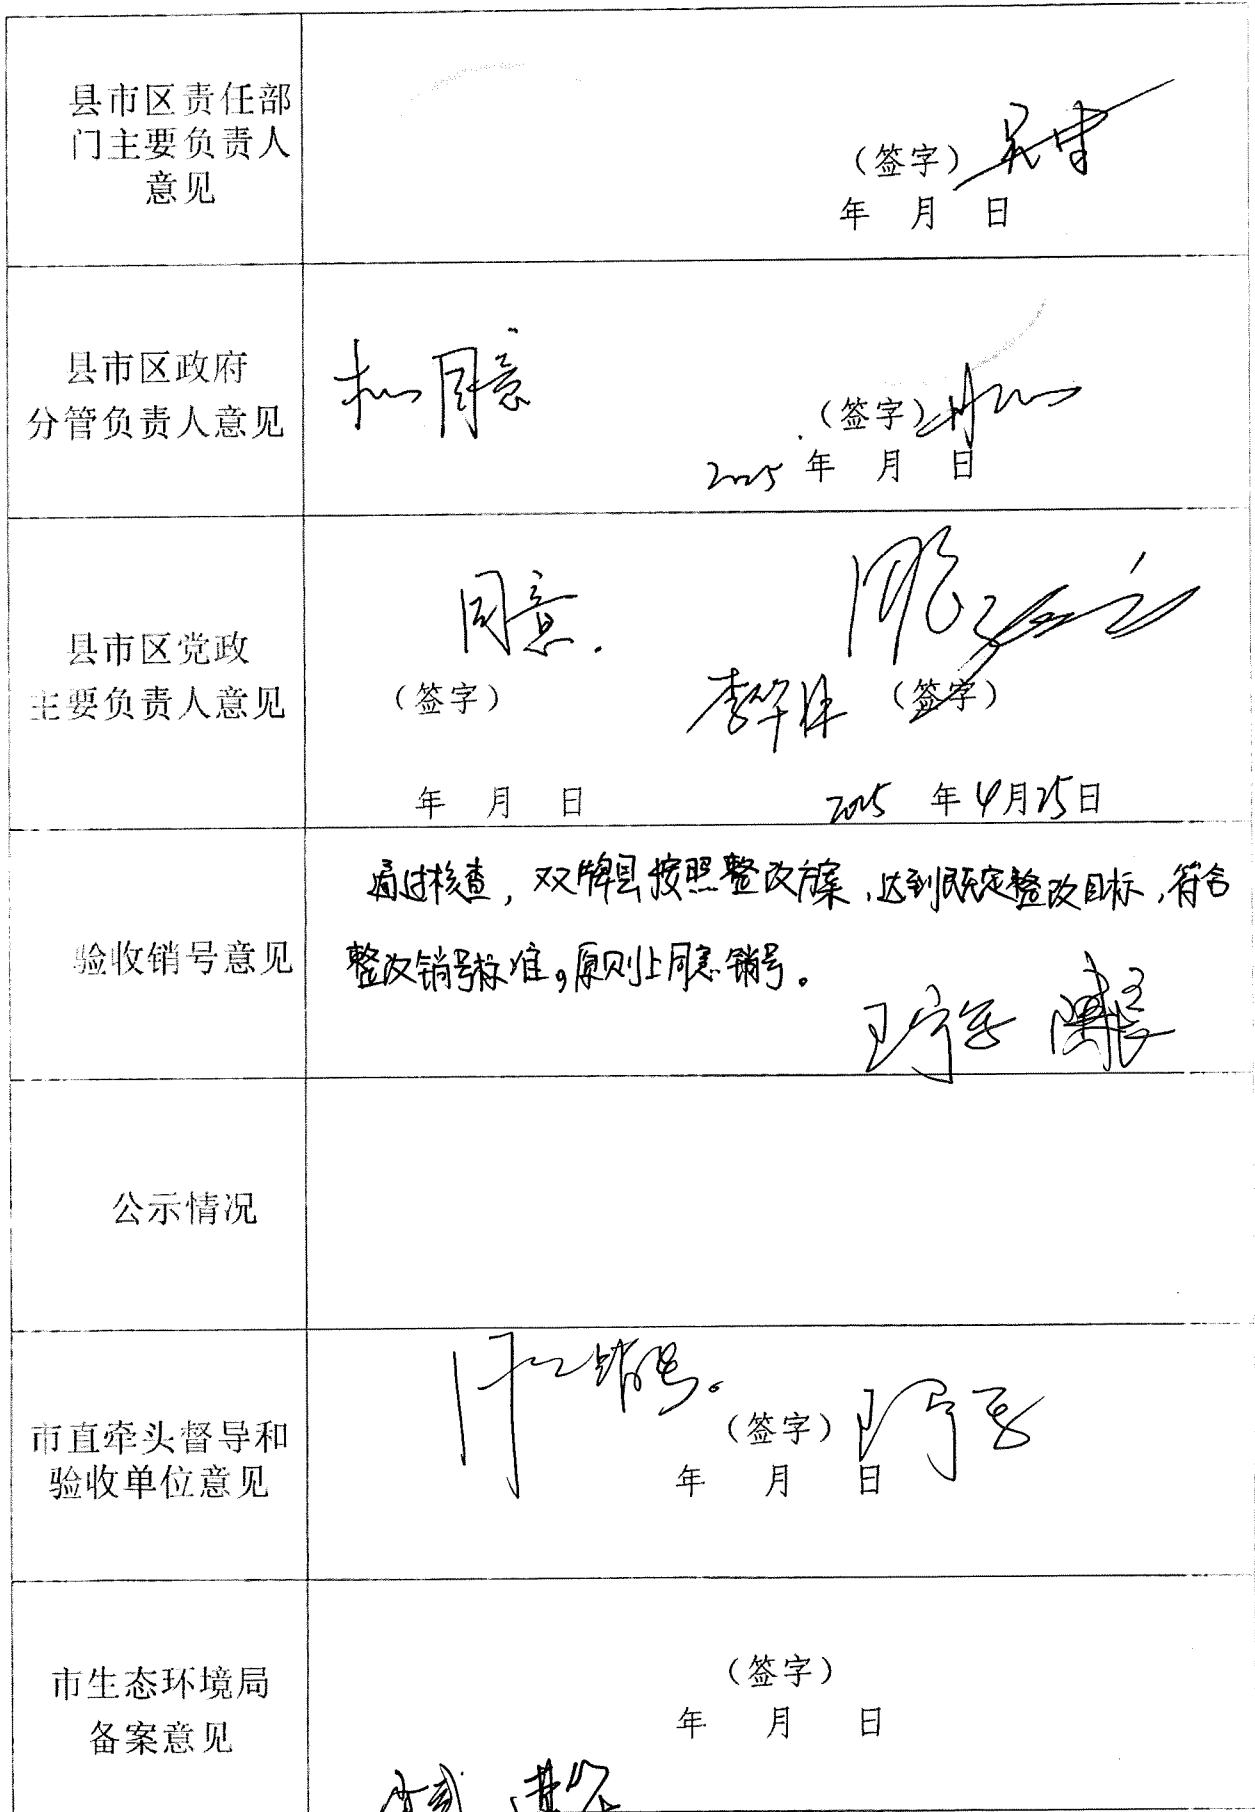 县市区责任部
门主要负责人
意见
（签字）
年 月 日
县市区政府
分管负责人意见
同意
（签字）
2025 年 月 日
县市区党政
主要负责人意见
同意.
（签字）
李华胜 （签字）
年 月 日
2025 年4月25日
验收销号意见
通过核查，双牌县按照整改方案，达到既定整改目标，符合
整改销号标准。原则上同意销号。
公示情况
市直牵头督导和
验收单位意见
销号。
（签字）
年 月 日
市生态环境局
备案意见
（签字）
年 月 日